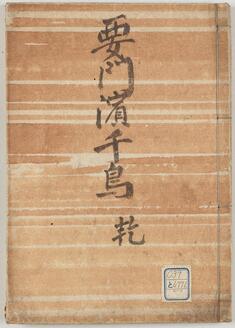 要門濱千鳥
乾